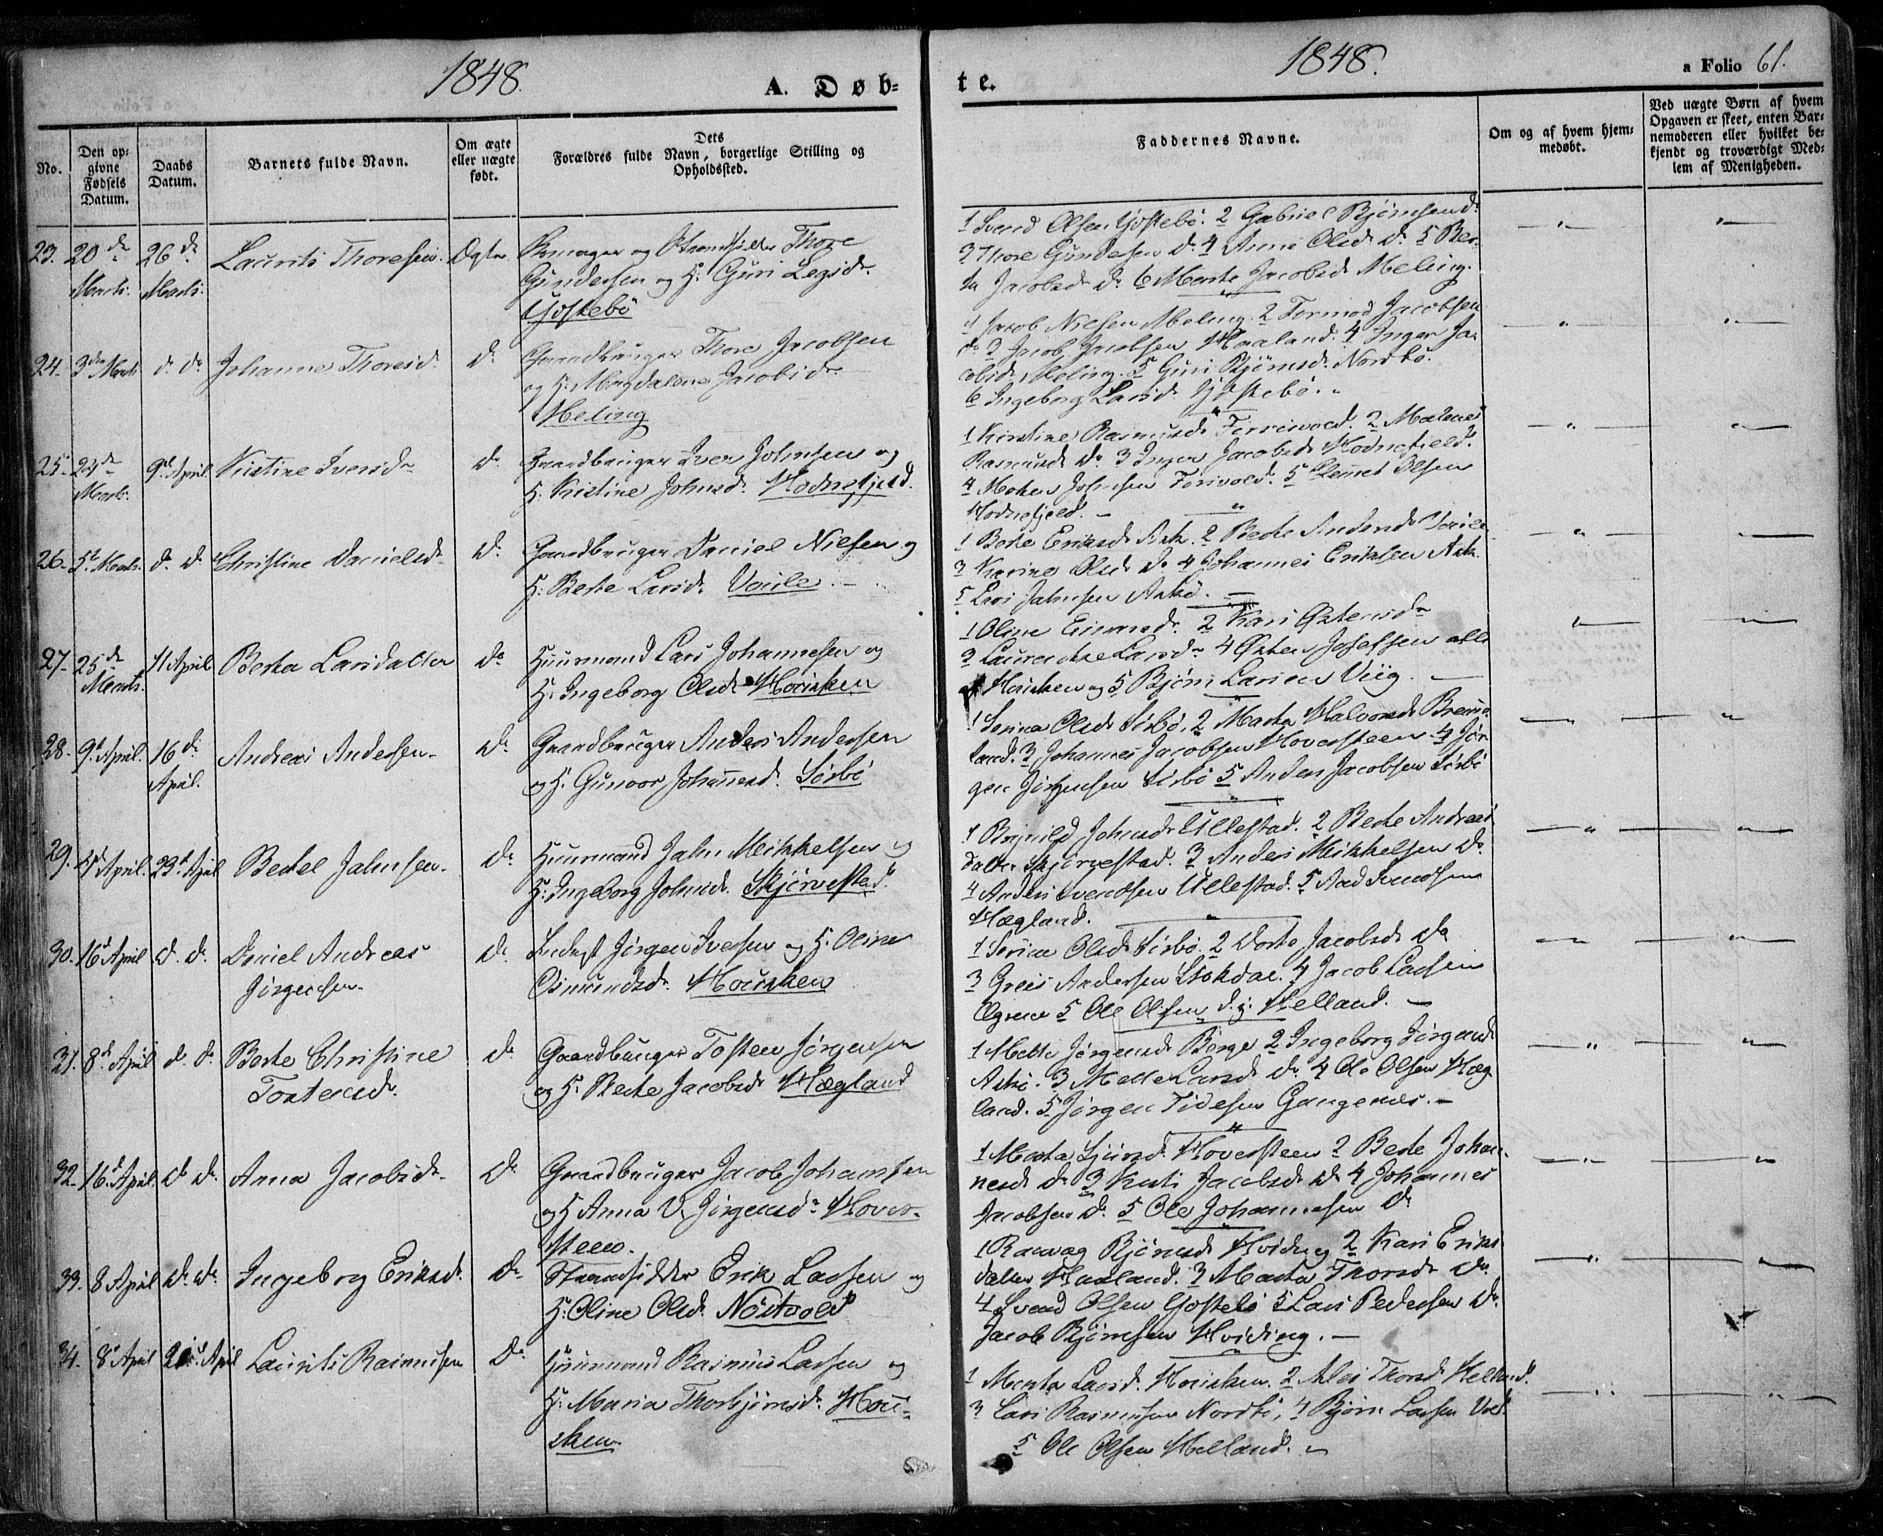 1848.
A. Døb=
te.
1848.
a Folio 61.
No.
Den op=
givne
Fødsels
Datum.
Daabs
Datum.
Barnets fulde Navn.
Om ægte
eller uægte
født.
Dets
Forældres fulde Navn, borgerlige Stilling og
Opholdssted.
Faddernes Navne.
Om og af hvem hjem=
medøbt.
Ved uægte Børn af hvem
Opgaven er skeet, enten Bar=
nemoderen eller hvilket be=
kjendt og troværdigt Med=
lem af Menigheden.
23. 20de Marts. 26de Marts. Laurits Thoresen. Ægte
og Strandsidder Thore
Gundersen og H. Guri Legsdr.
Gjostebö
1 Svend Olsen Gjostebö. 2 Gabriel Bjørnsen do
3 Thore Gundersen do 4 Anne Olsd. do 5 Ber-
ta Jacobsd. do 6 Marte Jacobsd. Meling.
24. 3die Marts d. do Johanne Thoresd. do
Gaardbruger Thore Jacobsen
og H. Magdalene Jacobsdr
Meling
1 Jacob Nielsen Meling. 2 Tormod Jacobsen
do 3 Jacob Jacobsen Haaland. 4 Inger Ja-
cobsd. Meling. 5 Guri Bjørnsd. Nordbö.
6 Ingeborg Larsd. Gjostebö.
25. Marts. 9d April Kristine Iversdr do
Gaardbruger Iver Johnsen og
H. Kristine Johnsd. Hodnefjeld.
1 Kirstine Rasmusd. 2 Malene
Rasmusd. do 3 Inger Jacobsd. Hodnefjeld.
4 Johnsen 5 Olsen
Hodnefjeld.
26. 5t Marts. d. do Christine Danielsd. do
Gaardbruger Daniel Nielsen og
H. Berte Larsd. Voile.
1 Berte Eriksd. Ask. 2 Berte Andersd. Voile
3 Karine Olsd. do 4 Johannes Eriksen Ask.
5 Lars Johnsen Askö.
27. 25de Marts. 11 April Berta Larsdatter do
Huusmand Lars Johannesen og
H. Ingeborg Olsd. Housken
1 Oline Einarsd. 2 Kari Østensdr
3 Larsdr 4 Østen Josefsen alle
Housken og 5 Bjørn Larsen Viig.
28. 9d April. 16de April. Andreas Andersen. do
Gaardbruger Anders Andersen
og H. Gunvor Johannesd. Sörbö
1 Serina Olsd. Sörbö. 2 Marta Halvorsd. Brem-
land. 3 Johannes Jacobsen Hoversteen. 4 Jör-
gen Jörgensen Sörbö 5 Anders Jacobsen Sörbö
29. April. 23d April Bertel Johnsen. do
Huusmand John Mikkelsen og
H. Ingeborg Johnsd. Skjörvestad.
1 Johnsd. Ullestad. 2 Berte Andreas-
datter Skjörvestad. 3 Anders Mikkelsen do
4 Anders Svendsen Ullestad. 5 Svendsen
Hægland.
30. 16d April d. do Daniel Andreas
Jörgensen. do
Jörgen Iversen og H. Oline
Osmundsd. Housken
1 Serina Olsd. Sörbö. 2 Dorte Jacobsd. do
3 Andersen Stokdal. 4 Jacob Larsen
5 Ole Olsen d. y. Helland.
31. 8d April d. do Berte Christine
Tostensd. do
Gaardbruger Tosten Jörgensen
og H. Berte Jacobsd. Hægland
1 Mette Jörgensd. Berge 2 Ingeborg Jörgensd.
Askö. 3 Larsd. do 4 Ole Olsen Hæg-
land. 5 Jörgen
32. 16d April. d. do Anna Jacobsd. do
Gaardbruger Jacob Johansen
og H. Anna V. Jörgensdr Hover-
steen.
1 Marta Hoversteen 2 Berte Johan-
nesd. do 3 Jacobsd. do 4 Johannes
Jacobsen do 5 Ole Johannesen do
33. 8 April d. do Ingeborg Eriksd. do
Strandsidder Erik Larsen og
H. Oline Olsd. Nöstvold
1 Bjørnsd. Hviding 2 Kari Eriks-
datter Haaland. 3 Marta Thorsd. do
4 Svend Olsen Gjostebö 5 Lars Pedersen do
Jacob Bjørnsen Hviding.
34. 8d April April Laurits Rasmusen do
Huusmand Rasmus Larsen og
H. Maria Thorbjørnsd. Hou-
sken
1 Marta Larsd. Housken. 2 Thorsd. Helland.
3 Lars Rasmusen Nordbö. 4 Bjørn Larsen
5 Ole Olsen Helland.